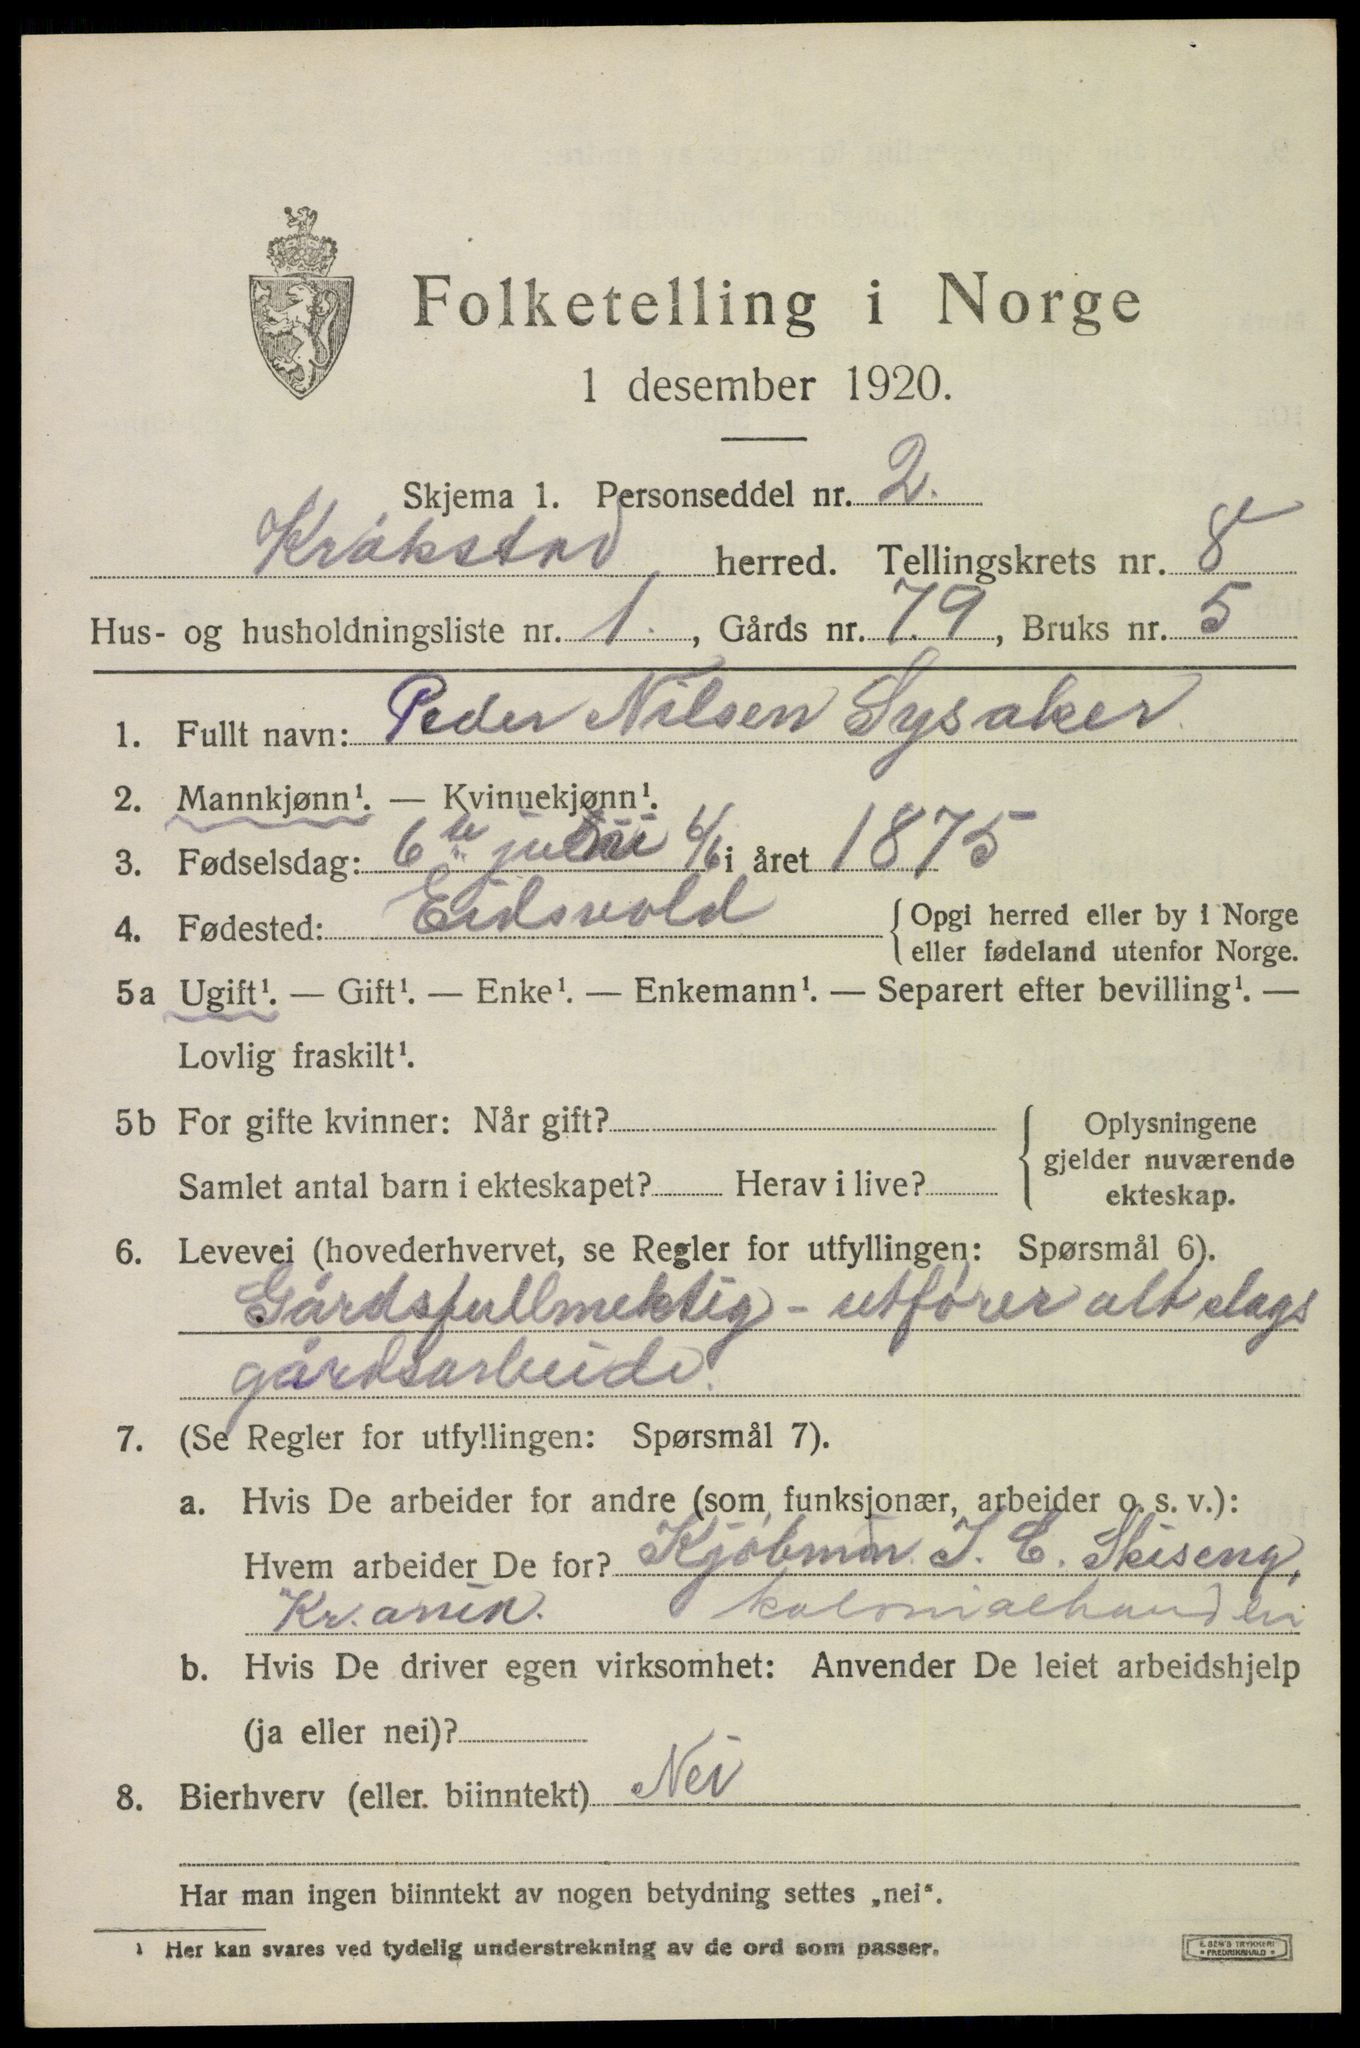 Folketelling i Norge
1 desember 1920.
Skjema 1. Personseddel nr. 2.
Kråkstad herred. Tellingskrets nr. 8
Hus- og husholdningsliste nr. 1., Gårds nr. 79, Bruks nr. 5
1. Fullt navn: Peder Nilsen Sysaker.
2. Mannkjønn¹. — Kvinnekjønn¹.
3. Fødselsdag: 6 juni 6/6 i året 1875
4. Fødested: Eidsvold
{ Opgi herred eller by i Norge
eller fødeland utenfor Norge.
5a Ugift¹. — Gift¹. — Enke¹. — Enkemann¹. — Separert efter bevilling¹. —
Lovlig fraskilt¹.
5b For gifte kvinner: Når gift?
Samlet antal barn i ekteskapet? Herav i live?
{ Oplysningene
gjelder nuværende
ekteskap.
6. Levevei (hovederhvervet, se Regler for utfyllingen: Spørsmål 6).
Gårdsfullmektig - utfører alt slags
gårdsarbeide.
7. (Se Regler for utfyllingen: Spørsmål 7).
a. Hvis De arbeider for andre (som funksjonær, arbeider o. s. v.):
Hvem arbeider De for? Kjöbman. J. E. Skiseng,
Kr.ania. kolonialhandler
b. Hvis De driver egen virksomhet: Anvender De leiet arbeidshjelp
(ja eller nei)?
8. Bierhverv (eller biinntekt) Nei
Har man ingen biinntekt av nogen betydning settes „nei“.
¹ Her kan svares ved tydelig understrekning av de ord som passer.
E. SEM'S TRYKKERI
FREDRIKSHALD